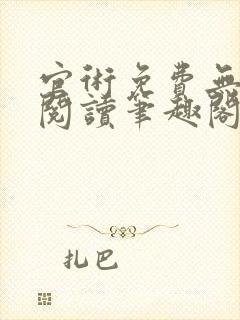 官術免費無
閱讀筆趣閣
扎巴